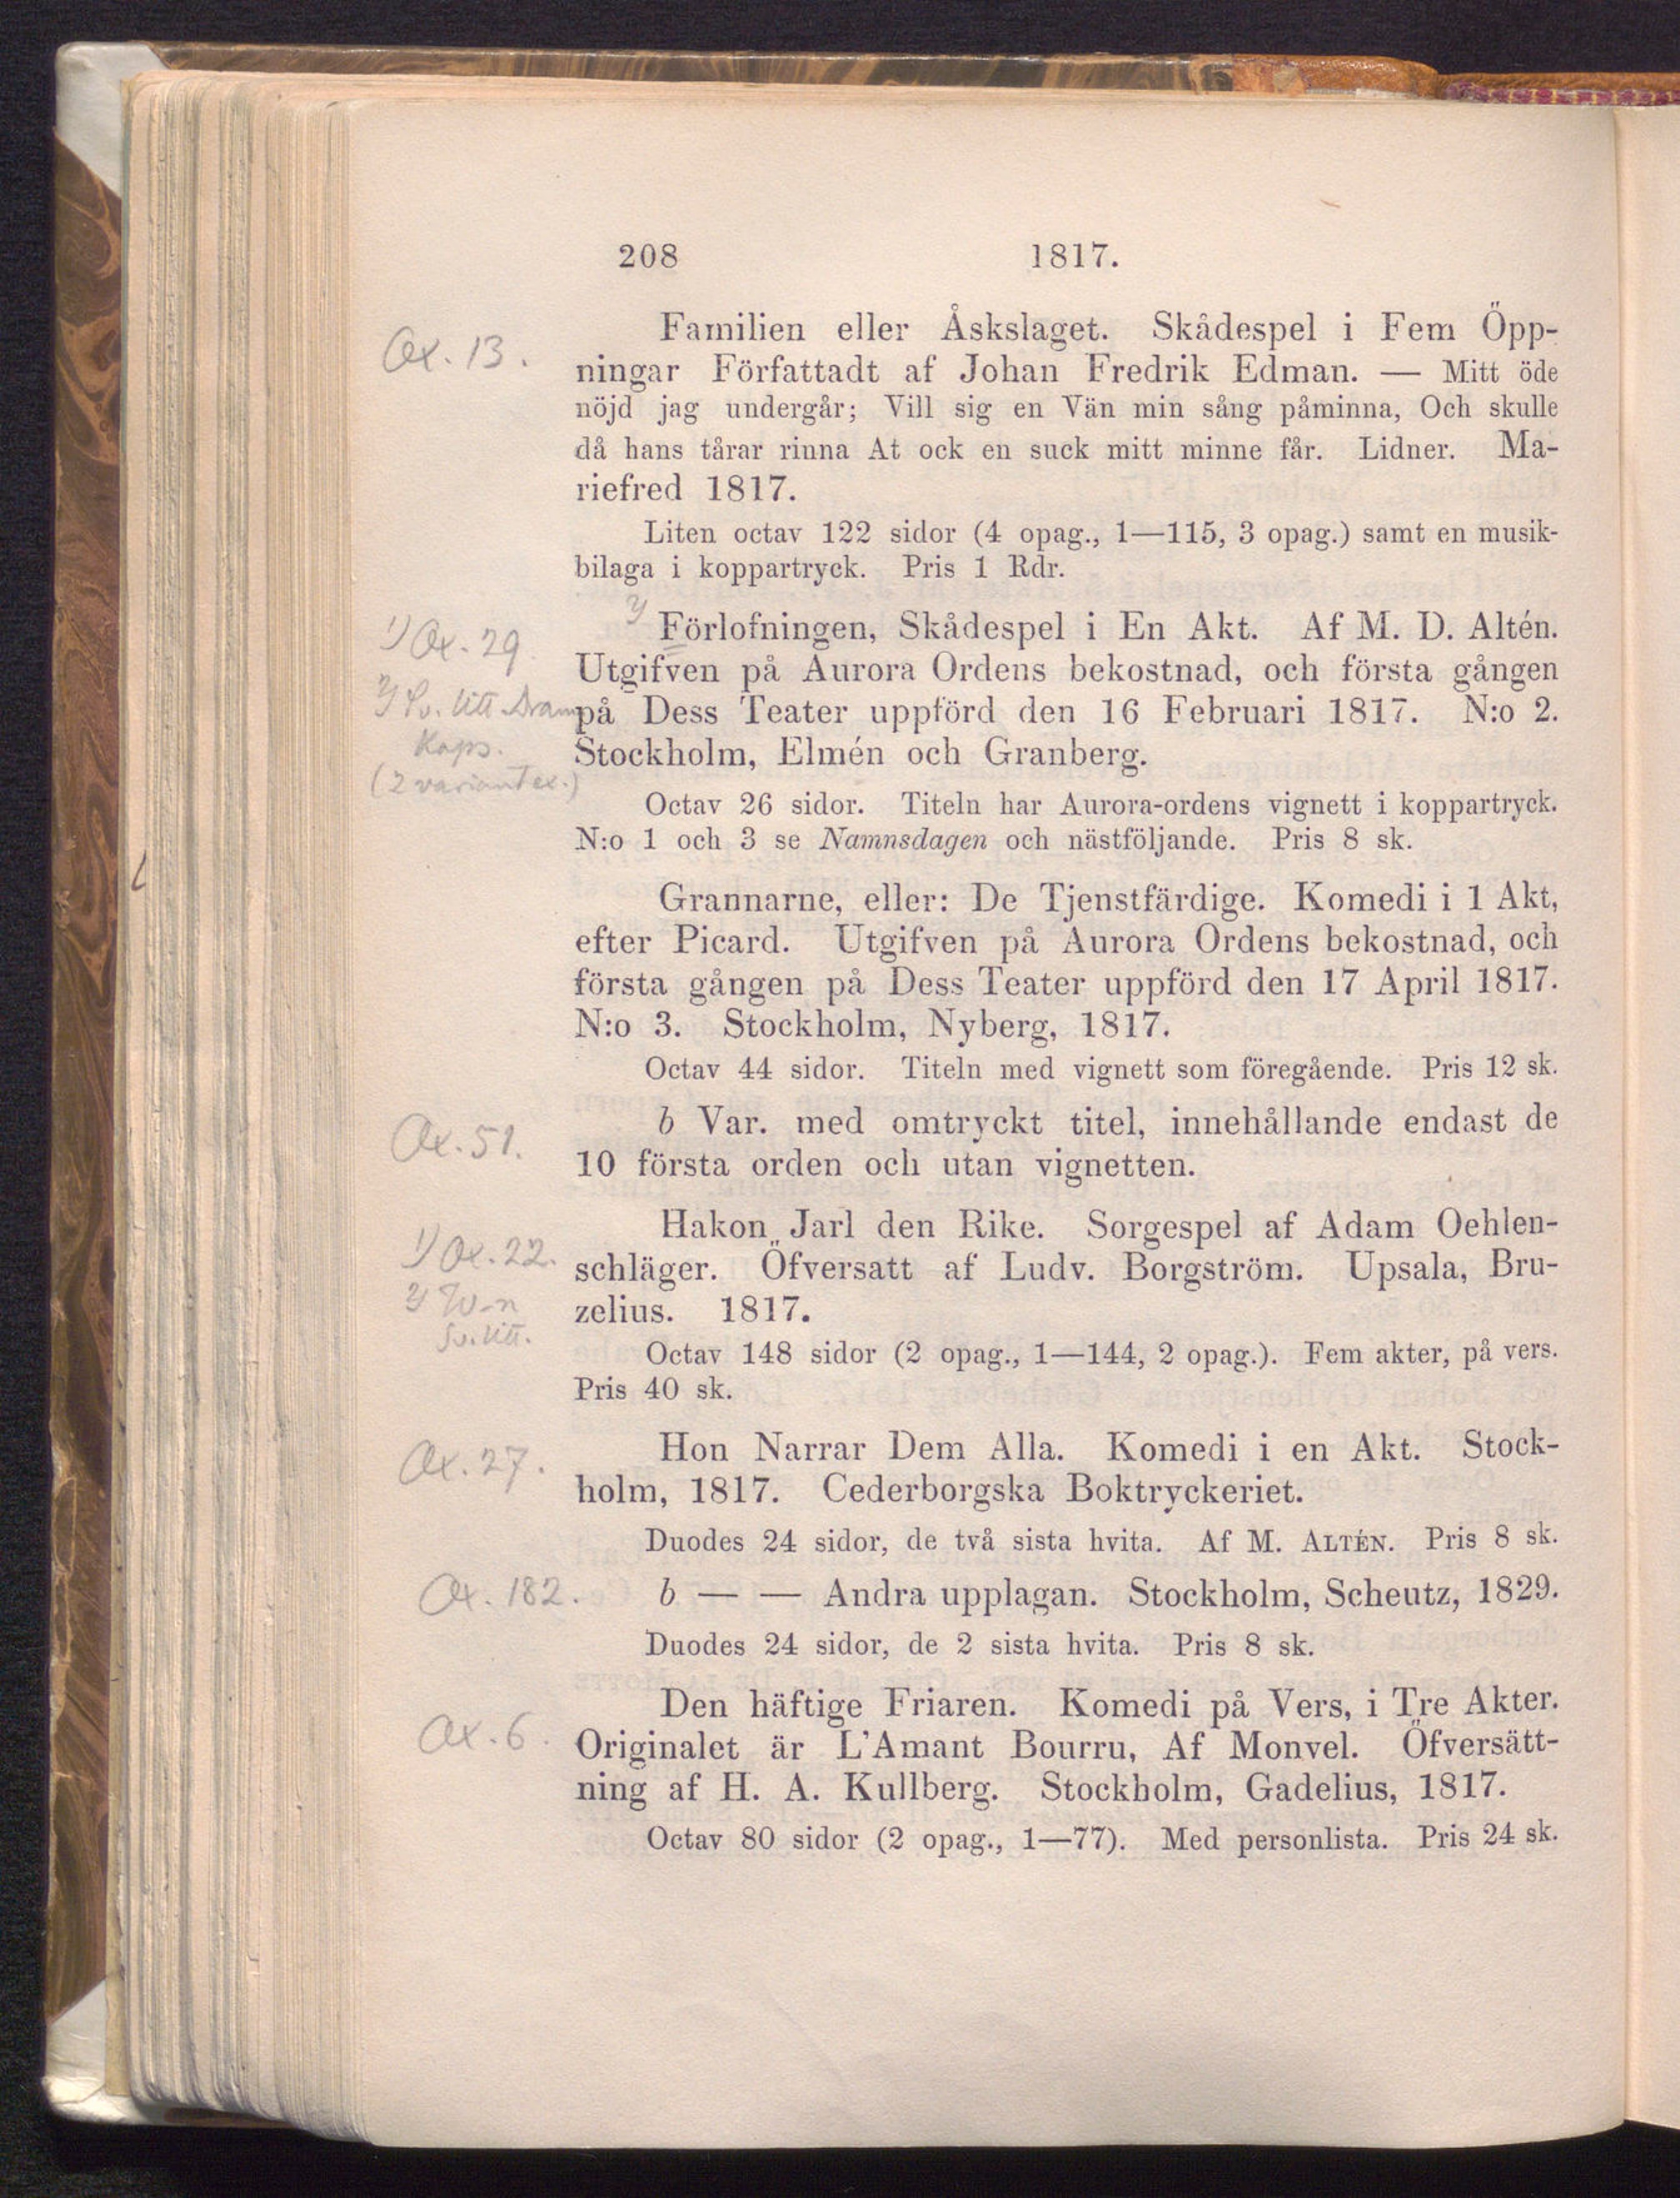 208 1817.
Ax. 13.
Familien eller Åskslaget. Skådespel i Fem Öpp-
ningar Författadt af Johan Fredrik Edman. — Mitt öde
nöjd jag undergår; Vill sig en Vän min sång påminna, Och skulle
då hans tårar rinna At ock en suck mitt minne får. Lidner. Ma-
riefred 1817.
Liten octav 122 sidor (4 opag., 1—115, 3 opag.) samt en musik-
bilaga i koppartryck. Pris 1 Rdr.
1) Ax. 29.
2) Sv. litt. Dram.
Kaps.
(2 variant ex.)
2) Förlofningen, Skådespel i En Akt. Af M. D. Altén.
Utgifven på Aurora Ordens bekostnad, och första gången
på Dess Teater uppförd den 16 Februari 1817. N:o 2.
Stockholm, Elmén och Granberg.
Octav 26 sidor. Titeln har Aurora-ordens vignett i koppartryck.
N:o 1 och 3 se Namnsdagen och nästföljande. Pris 8 sk.
Grannarne, eller: De Tjenstfärdige. Komedi i 1 Akt,
efter Picard. Utgifven på Aurora Ordens bekostnad, och
första gången på Dess Teater uppförd den 17 April 1817.
N:o 3. Stockholm, Nyberg, 1817.
Octav 44 sidor. Titeln med vignett som föregående. Pris 12 sk.
Ax. 51.
b Var. med omtryckt titel, innehållande endast de
10 första orden och utan vignetten.
1) Ax. 22.
2) W-n
Sv. litt.
Hakon Jarl den Rike. Sorgespel af Adam Oehlen-
schläger. Öfversatt af Ludv. Borgström. Upsala, Bru-
zelius. 1817.
Octav 148 sidor (2 opag., 1—144, 2 opag.). Fem akter, på vers.
Pris 40 sk.
Ax. 27.
Hon Narrar Dem Alla. Komedi i en Akt. Stock-
holm, 1817. Cederborgska Boktryckeriet.
Duodes 24 sidor, de två sista hvita. Af M. ALTÉN. Pris 8 sk.
Ax. 182.
b — — Andra upplagan. Stockholm, Scheutz, 1829.
Duodes 24 sidor, de 2 sista hvita. Pris 8 sk.
Ax. 6.
Den häftige Friaren. Komedi på Vers, i Tre Akter.
Originalet är L'Amant Bourru, Af Monvel. Öfversätt-
ning af H. A. Kullberg. Stockholm, Gadelius, 1817.
Octav 80 sidor (2 opag., 1—77). Med personlista. Pris 24 sk.